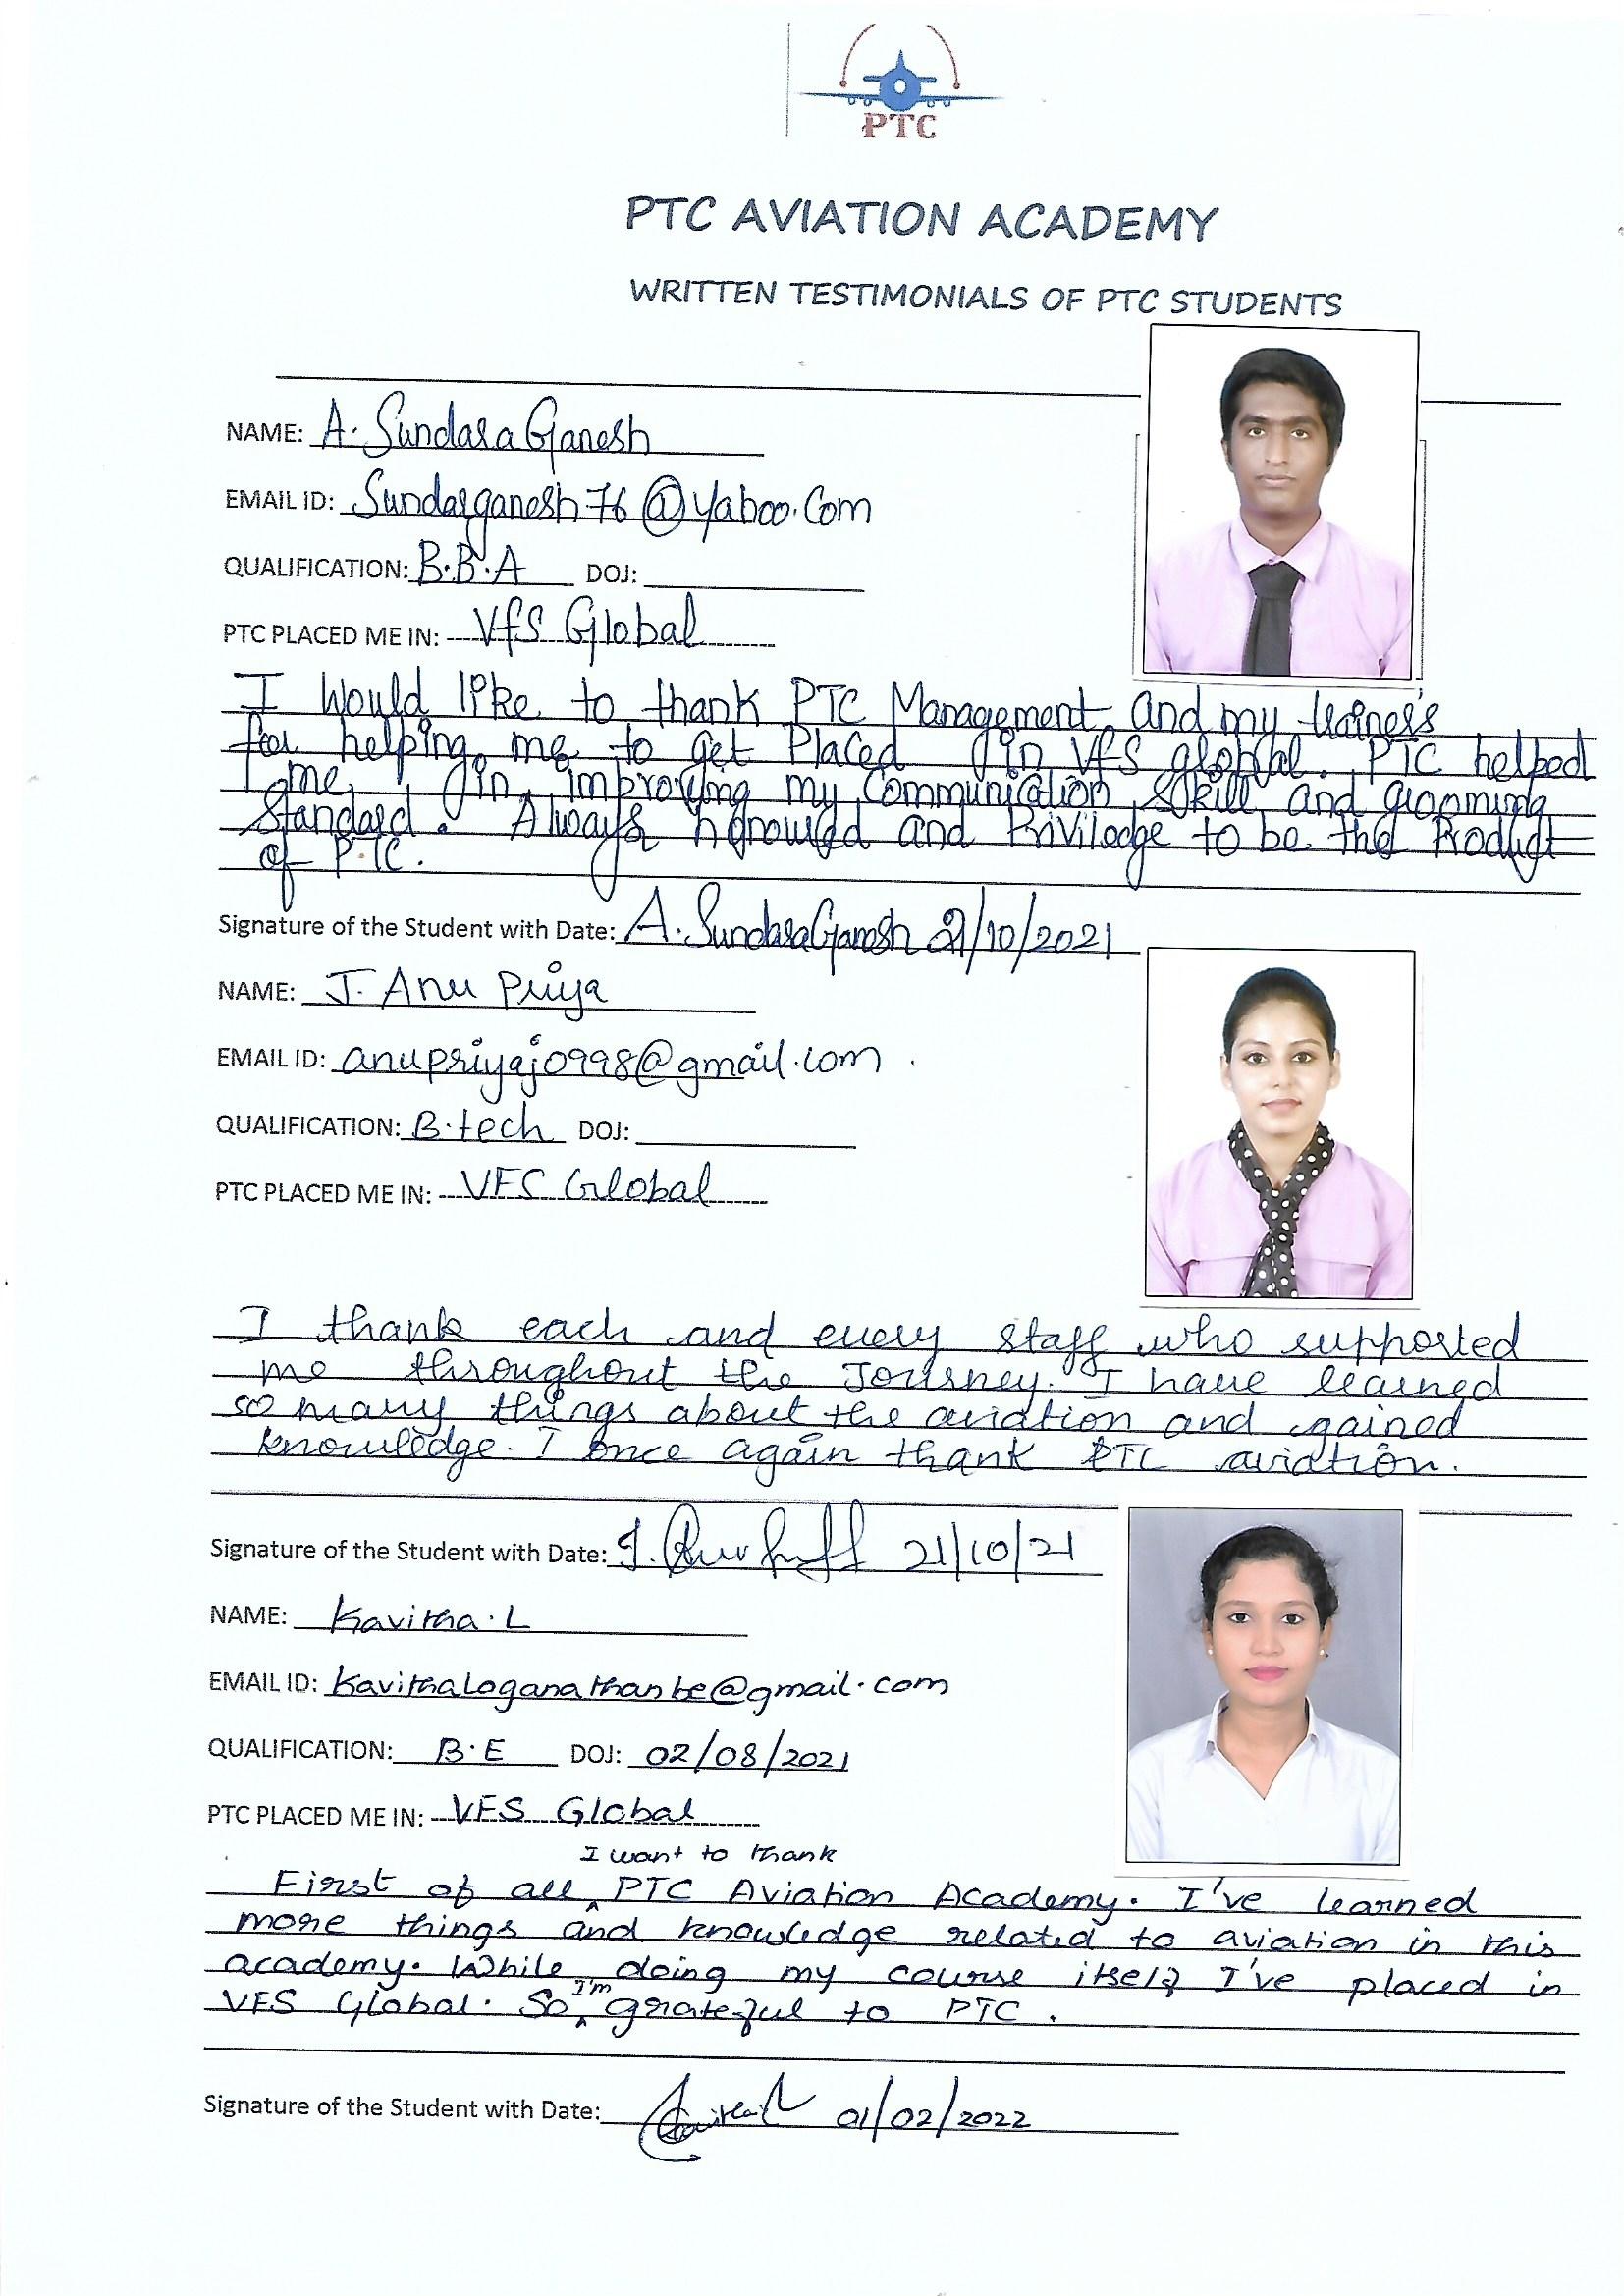 PTC
PTC AVIATION ACADEMY
WRITTEN TESTIMONIALS OF PTC STUDENTS
NAME: A. Sundara Ganesh
EMAIL ID: Sundarganesh76@yahoo.Com
QUALIFICATION: B.B.A DOJ:
PTC PLACED ME IN: Vfs Global
I Would like to thank PTC Management and my trainer's
for helping me to get Placed in Vfs global. PTC helped
me in improving my Communication skill and grooming
Standard. Always honoured and Priviledge to be the Product
of PTC.
Signature of the Student with Date: A. Sundara Ganesh 21/10/2021
NAME: J. Anu Priya
EMAIL ID: anupriyaj0998@gmail.com
QUALIFICATION: B.tech DOJ:
PTC PLACED ME IN: VFS Global
I thank each and every staff who supported
me throughout the Journey. I have learned
so many things about the aviation and gained
knowledge. I once again thank PTC aviation.
Signature of the Student with Date: J. 21/10/21
NAME: Kavitha.L
EMAIL ID: kavithaloganathanbe@gmail.com
QUALIFICATION: B.E DOJ: 02/08/2021
PTC PLACED ME IN: VFS Global
I want to thank
First of all PTC Aviation Academy. I've learned
more things and knowledge related to aviation in this
academy. While doing my course itself I've placed in
VFS Global. So I'm grateful to PTC.
Signature of the Student with Date: 01/02/2022